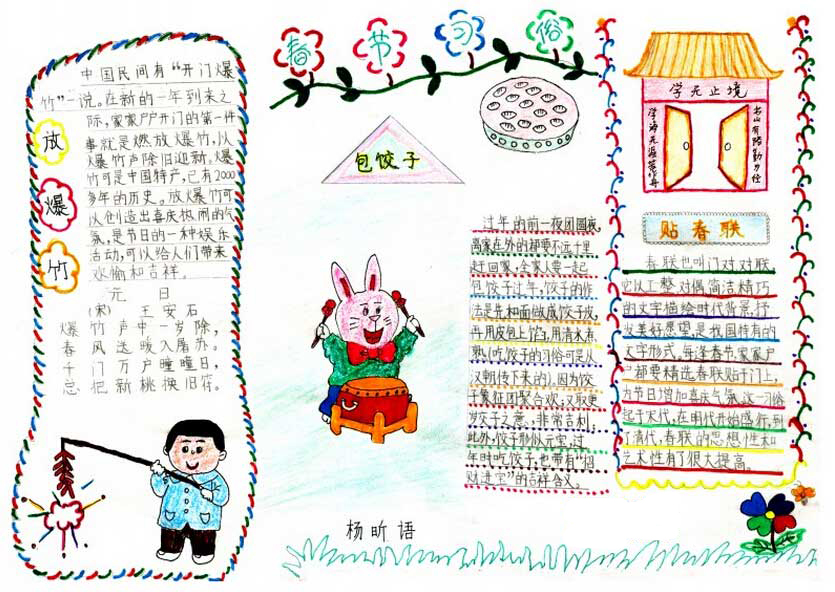 春节习俗
放爆竹
中国民间有“开门爆
竹”一说。在新的一年到来之
际，家家户户开门的第一件
事就是燃放爆竹，以
爆竹声除旧迎新。爆
竹可是中国特产，已有2000
多年的历史。放爆竹可
以创造出喜庆热闹的气
氛，是节日的一种娱乐
活动，可以给人们带来
欢愉和吉祥。
元日
(宋) 王安石
爆竹声中一岁除，
春风送暖入屠苏。
千门万户曈曈日，
总把新桃换旧符。
包饺子
过年的前一夜团圆夜，
离家在外的都要不远千里
赶回家，全家人要一起
包饺子过年，饺子的作
法是先和面做成饺子皮，
再用皮包上馅，用清水煮
熟(吃饺子的习俗可是从
汉朝传下来的)。因为饺
子象征团聚合欢；又取更
岁交子之意，非常吉利；
此外，饺子形似元宝，过
年时吃饺子，也带有“招
财进宝”的吉祥含义。
杨昕语
学无止境
学海无涯苦作舟
书山有路勤为径
贴春联
春联也叫门对、对联，
它以工整、对偶、简洁、精巧
的文字描绘时代背景，抒
发美好愿望，是我国特有的
文学形式。每逢春节，家家户
户都要精选春联贴于门上，
为节日增加喜庆气氛。这一习俗
起于宋代，在明代开始盛行，到
了清代，春联的思想性和
艺术性有了很大提高。